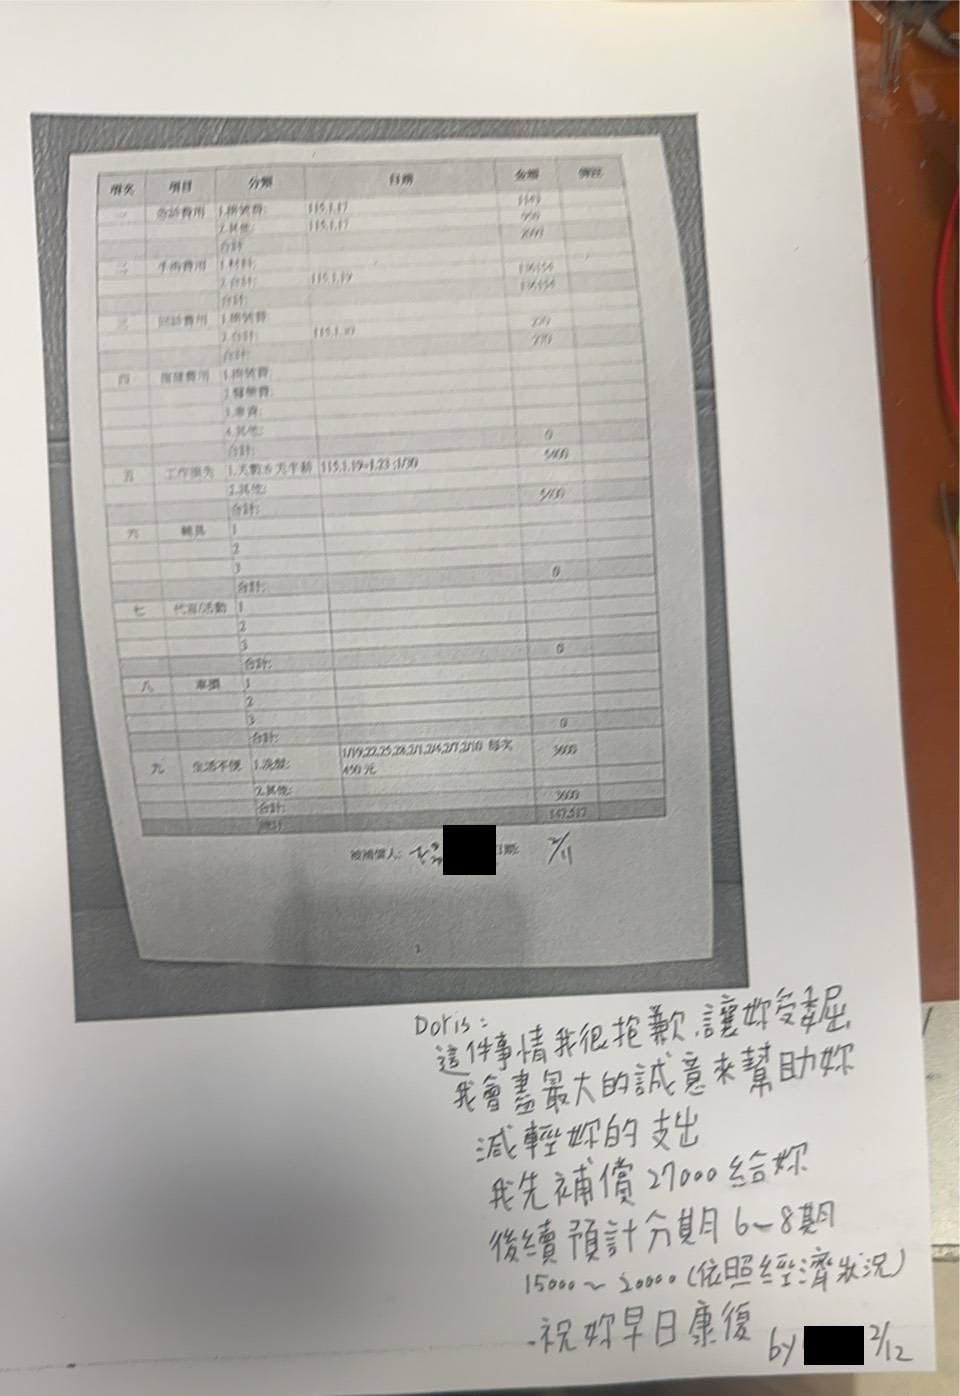 項次 項目 分類 日期 金額 備註
一 急診費用 1.掛號費: 115.1.17
2.其他: 115.1.17
合計
二 手術費用 1.材料:
2.合計: 115.1.19
合計:
三 回診費用 1.掛號費
2.合計: 115.1.30
合計:
四 復健費用 1.掛號費
2.醫藥費:
3.車資:
4.其他:
合計: 0
五 工作損失 1.天數 115.1.19~1.23 ;1/30 5400
2.其他:
合計: 5400
六 輔具 1
2
3
合計: 0
七 代班/活動 1
2
3
合計: 0
八 車損 1
2
3
合計: 0
九 生活不便 1.洗髮: 1/19,22,25,28,2/1,2/4,2/7,2/10 每次 3600
450 元
2.其他:
合計: 3600
總計
被補償人: 日期: 2/11
1
Doris:
這件事情我很抱歉,讓妳受委屈
我會盡最大的誠意來幫助妳
減輕妳的支出
我先補償 27000 給妳
後續預計分期 6~8期
15000~20000(依照經濟狀況)
祝妳早日康復
by 2/12